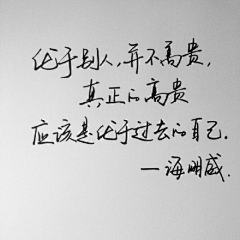 优于别人，并不高贵，
真正的高贵
应该是优于过去的自己．
—海明威．